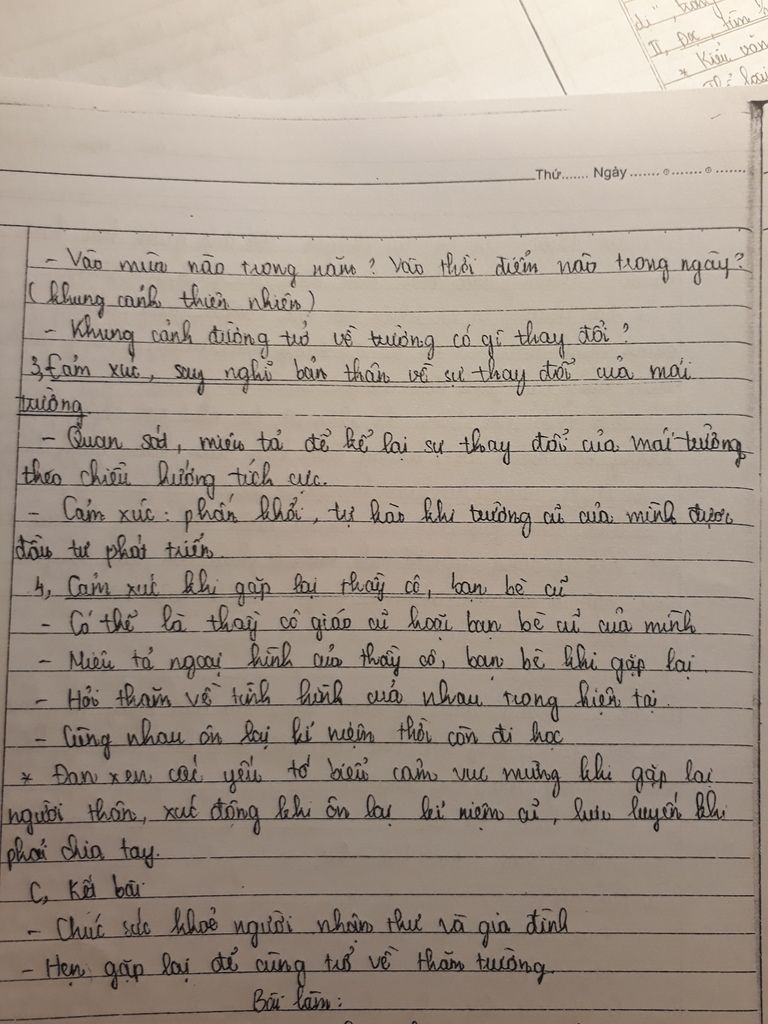 di", trong
II, Đọc, tìm h
* Kiểu văn
Thể loại
Thứ....... Ngày ..............
- Vào mùa nào trong năm? Vào thời điểm nào trong ngày?
(khung cảnh thiên nhiên)
- Khung cảnh đường trở về trường có gì thay đổi?
3, Cảm xúc, suy nghĩ bản thân về sự thay đổi của mái
trường
- Quan sát, miêu tả để kể lại sự thay đổi của mái trường
theo chiều hướng tích cực.
- Cảm xúc: phấn khởi, tự hào khi trường cũ của mình được
đầu tư phát triển.
4, Cảm xúc khi gặp lại thầy cô, bạn bè cũ
- Có thể là thầy cô giáo cũ hoặc bạn bè cũ của mình
- Miêu tả ngoại hình của thầy cô, bạn bè khi gặp lại.
- Hỏi thăm về tình hình của nhau trong hiện tại.
- Cùng nhau ôn lại kỉ niệm thời còn đi học
* Đan xen các yếu tố biểu cảm vui mừng khi gặp lại
người thân, xúc động khi ôn lại kỉ niệm cũ, lưu luyến khi
phải chia tay.
C, Kết bài
- Chúc sức khoẻ người nhận thư và gia đình
- Hẹn gặp lại để cùng trở về thăm trường.
Bài làm: